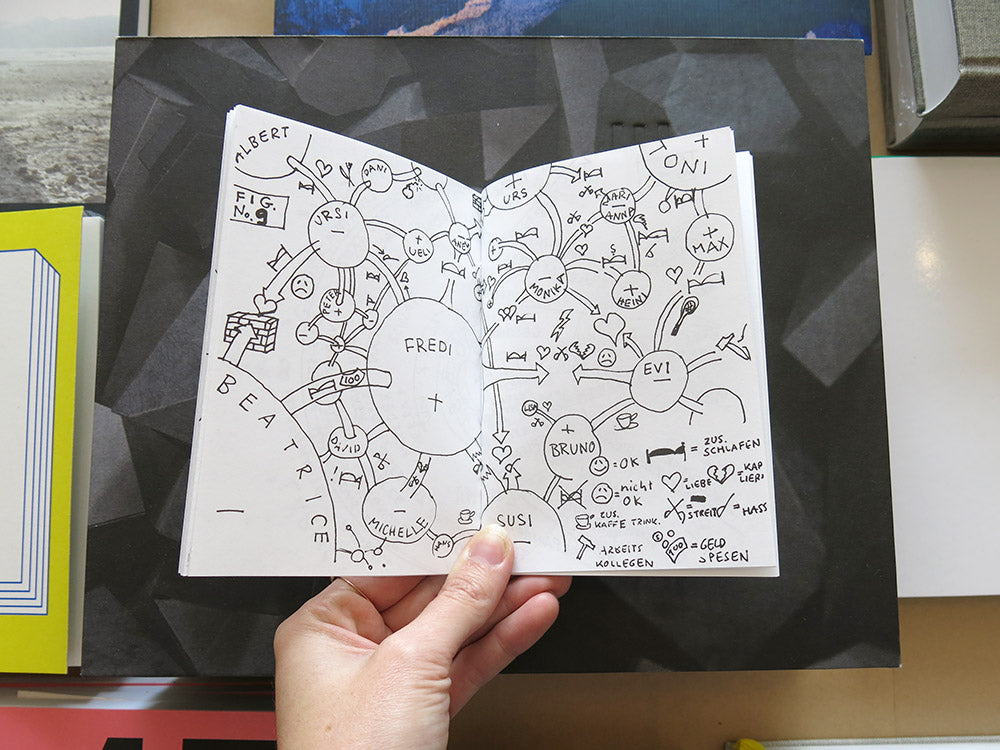 ALBERT
FIG.
No. 9
DANI
URSI
-
+
UELI
PETER
+
FREDI
+
100
BEATRICE
-
DAVID
-
MICHELLE
+
URS
+
TONI
-
ANNA
+
MAX
-
MONIKA
+
HEINI
$
EVI
-
+
BRUNO
SUSI
-
= OK
= nicht
OK
ZUS.
KAFFE TRINK.
ARBEITS
KOLLEGEN
= ZUS.
SCHLAFEN
= LIEBE
= KAP
= STREIT
= HASS
100
= GELD
SPESEN